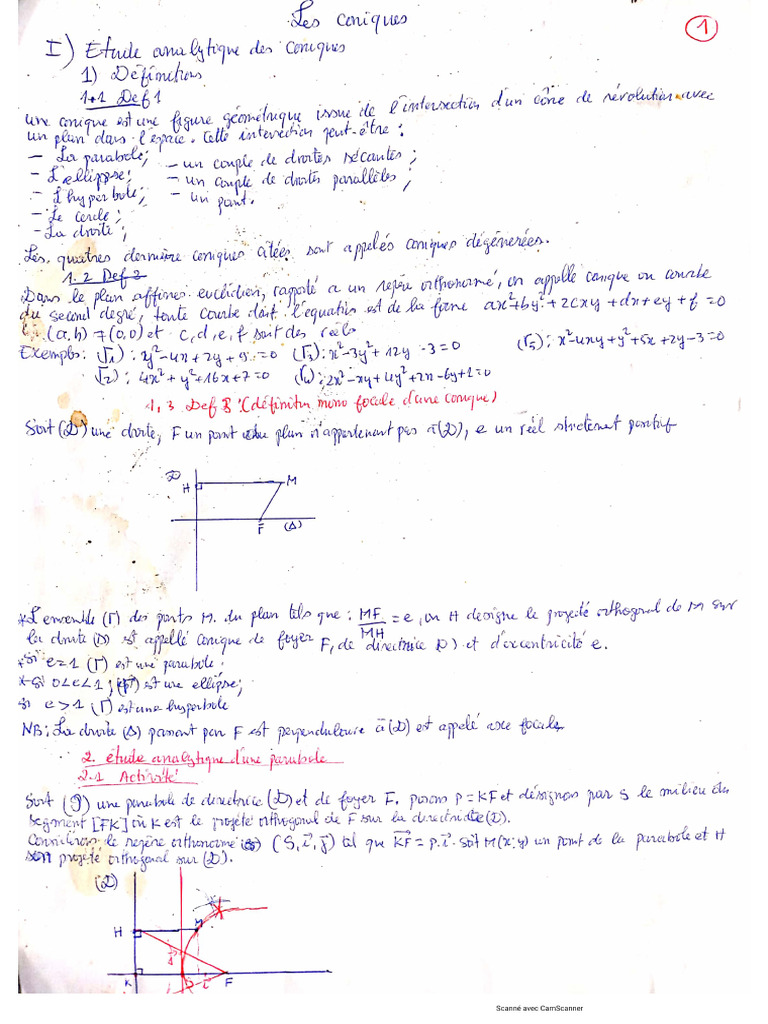 Les Coniques
1
I) Etude analytique des Coniques
1) Définitions
1.1 Def 1
une conique est une figure géométrique issue de l'intersection d'un cône de révolution avec
un plan dans l'espace. Cette intersection peut-être :
- La parabole; - un couple de droites sécantes;
- L'ellippse; - un couple de droites parallèles;
- L'hyperbole; - un point.
- Le cercle;
- La droite;
Les quatres dernière coniques citées sont appelés coniques dégénérées.
1.2 Def 2
Dans le plan affines euclidien, rapporté a un repère orthonormé, on appelle conique ou courbe
du second degré, toute courbe dont l'équation est de la forme ax²+by²+2cxy+dx+ey+f=0
(a,b)≠(0,0) et c,d,e,f sont des réels
Exemples: (Γ1): y²-4x+2y+9=0 (Γ3): x²-3y²+12y-3=0 (Γ5): x²-4xy+y²+5x+2y-3=0
(Γ2): 4x²+y²+16x+7=0 (Γ4): 2x²-xy+4y²+2x-6y+1=0
1.3 Def 3 (définition mono focale d'une conique)
Soit (D) une droite, F un point du plan n'appartenant pas à (D), e un réel strictement positif
D
H M
F (Δ)
*L'ensemble (Γ) des points M du plan tels que : MF/MH = e, où H designe le projeté orthogonal de M sur
la droite (D) est appellé conique de foyer F, de directrice (D) et d'excentricité e.
*si e=1 (Γ) est une parabole.
*si 0<e<1; (Γ) est une ellipse;
si e>1 (Γ) est une hyperbole
NB: La droite (Δ) passant par F est perpendiculaire à (D) est appelé axe focale
2. étude analytique d'une parabole
2.1 Activité
Soit (P) une parabole de directrice (D) et de foyer F. posons p=KF et désignons par S le milieu du
segment [FK] où K est le projeté orthogonal de F sur la directrice (D).
Considérons le repère orthonormé (S, i, j) tel que KF = p.i. soit M(x;y) un point de la parabole et H
son projeté orthogonal sur (D).
(D)
H M
K F
Scanné avec CamScanner